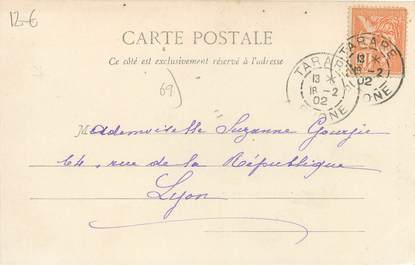 12-€
CARTE POSTALE
Ce côté est exclusivement réservé à l'adresse
TARARE
13 *
18 -2
02
RHONE
TARARE
13 *
18 -2
02
RHONE
69)
Mademoiselle Suzanne
64, rue de la République
Lyon